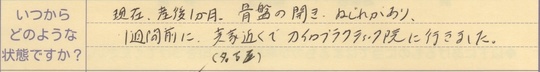 いつから
どのような
状態ですか?
現在、産後1か月。骨盤の開き、ねじれがあり、
1週間前に、実家近くでカイロプラクティック院に行きました。
(名古屋)